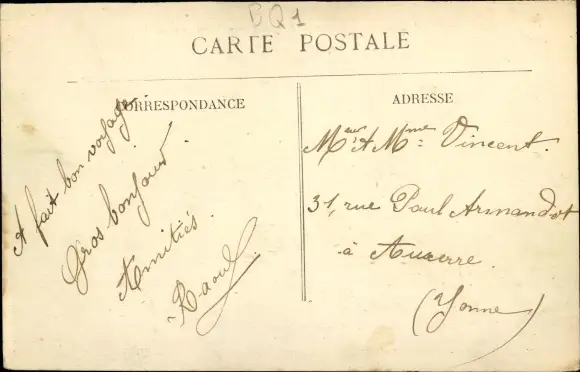 BQ1
CARTE POSTALE
CORRESPONDANCE
A fait bon voyage.
Gros bonjour
Amitiés.
Raoul
ADRESSE
Meur & Mme Vincent.
31, rue Paul Armandot
à Auxerre.
(Yonne)